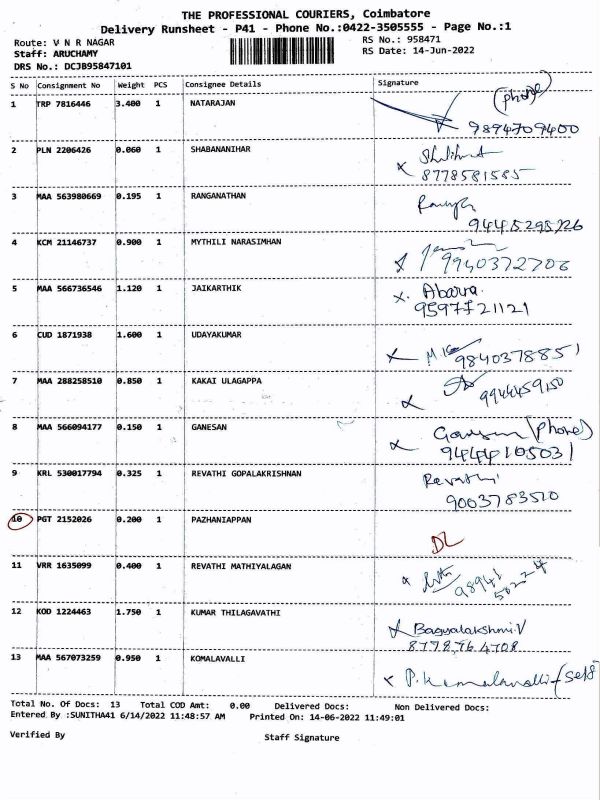 THE PROFESSIONAL COURIERS, Coimbatore
Delivery Runsheet - P41 - Phone No.:0422-3505555 - Page No.:1
Route: V N R NAGAR RS No.: 958471
Staff: ARUCHAMY RS Date: 14-Jun-2022
DRS No.: DCJB95847101
S No Consignment No Weight PCS Consignee Details Signature
1 TRP 7816446 3.400 1 NATARAJAN (phone)
9894709400
2 PLN 2206426 0.060 1 SHABANANIHAR
8778581585
3 MAA 563980669 0.195 1 RANGANATHAN
9445295726
4 KCM 21146737 0.900 1 MYTHILI NARASIMHAN
9940372706
5 MAA 566736546 1.120 1 JAIKARTHIK
9597721121
6 CUD 1871938 1.600 1 UDAYAKUMAR
9840378851
7 MAA 288258510 0.850 1 KAKAI ULAGAPPA
9944459150
8 MAA 566094177 0.150 1 GANESAN (phone)
9444105031
9 KRL 530017794 0.325 1 REVATHI GOPALAKRISHNAN Revathi
9003783510
10 PGT 2152026 0.200 1 PAZHANIAPPAN
DL
11 VRR 1635099 0.400 1 REVATHI MATHIYALAGAN
98941
50224
12 KOD 1224463 1.750 1 KUMAR THILAGAVATHI
Bagyalakshmi.V
8778764708
13 MAA 567073259 0.950 1 KOMALAVALLI
P. Komalavalli - (self)
Total No. Of Docs: 13 Total COD Amt: 0.00 Delivered Docs: Non Delivered Docs:
Entered By :SUNITHA41 6/14/2022 11:48:57 AM Printed On: 14-06-2022 11:49:01
Verified By Staff Signature